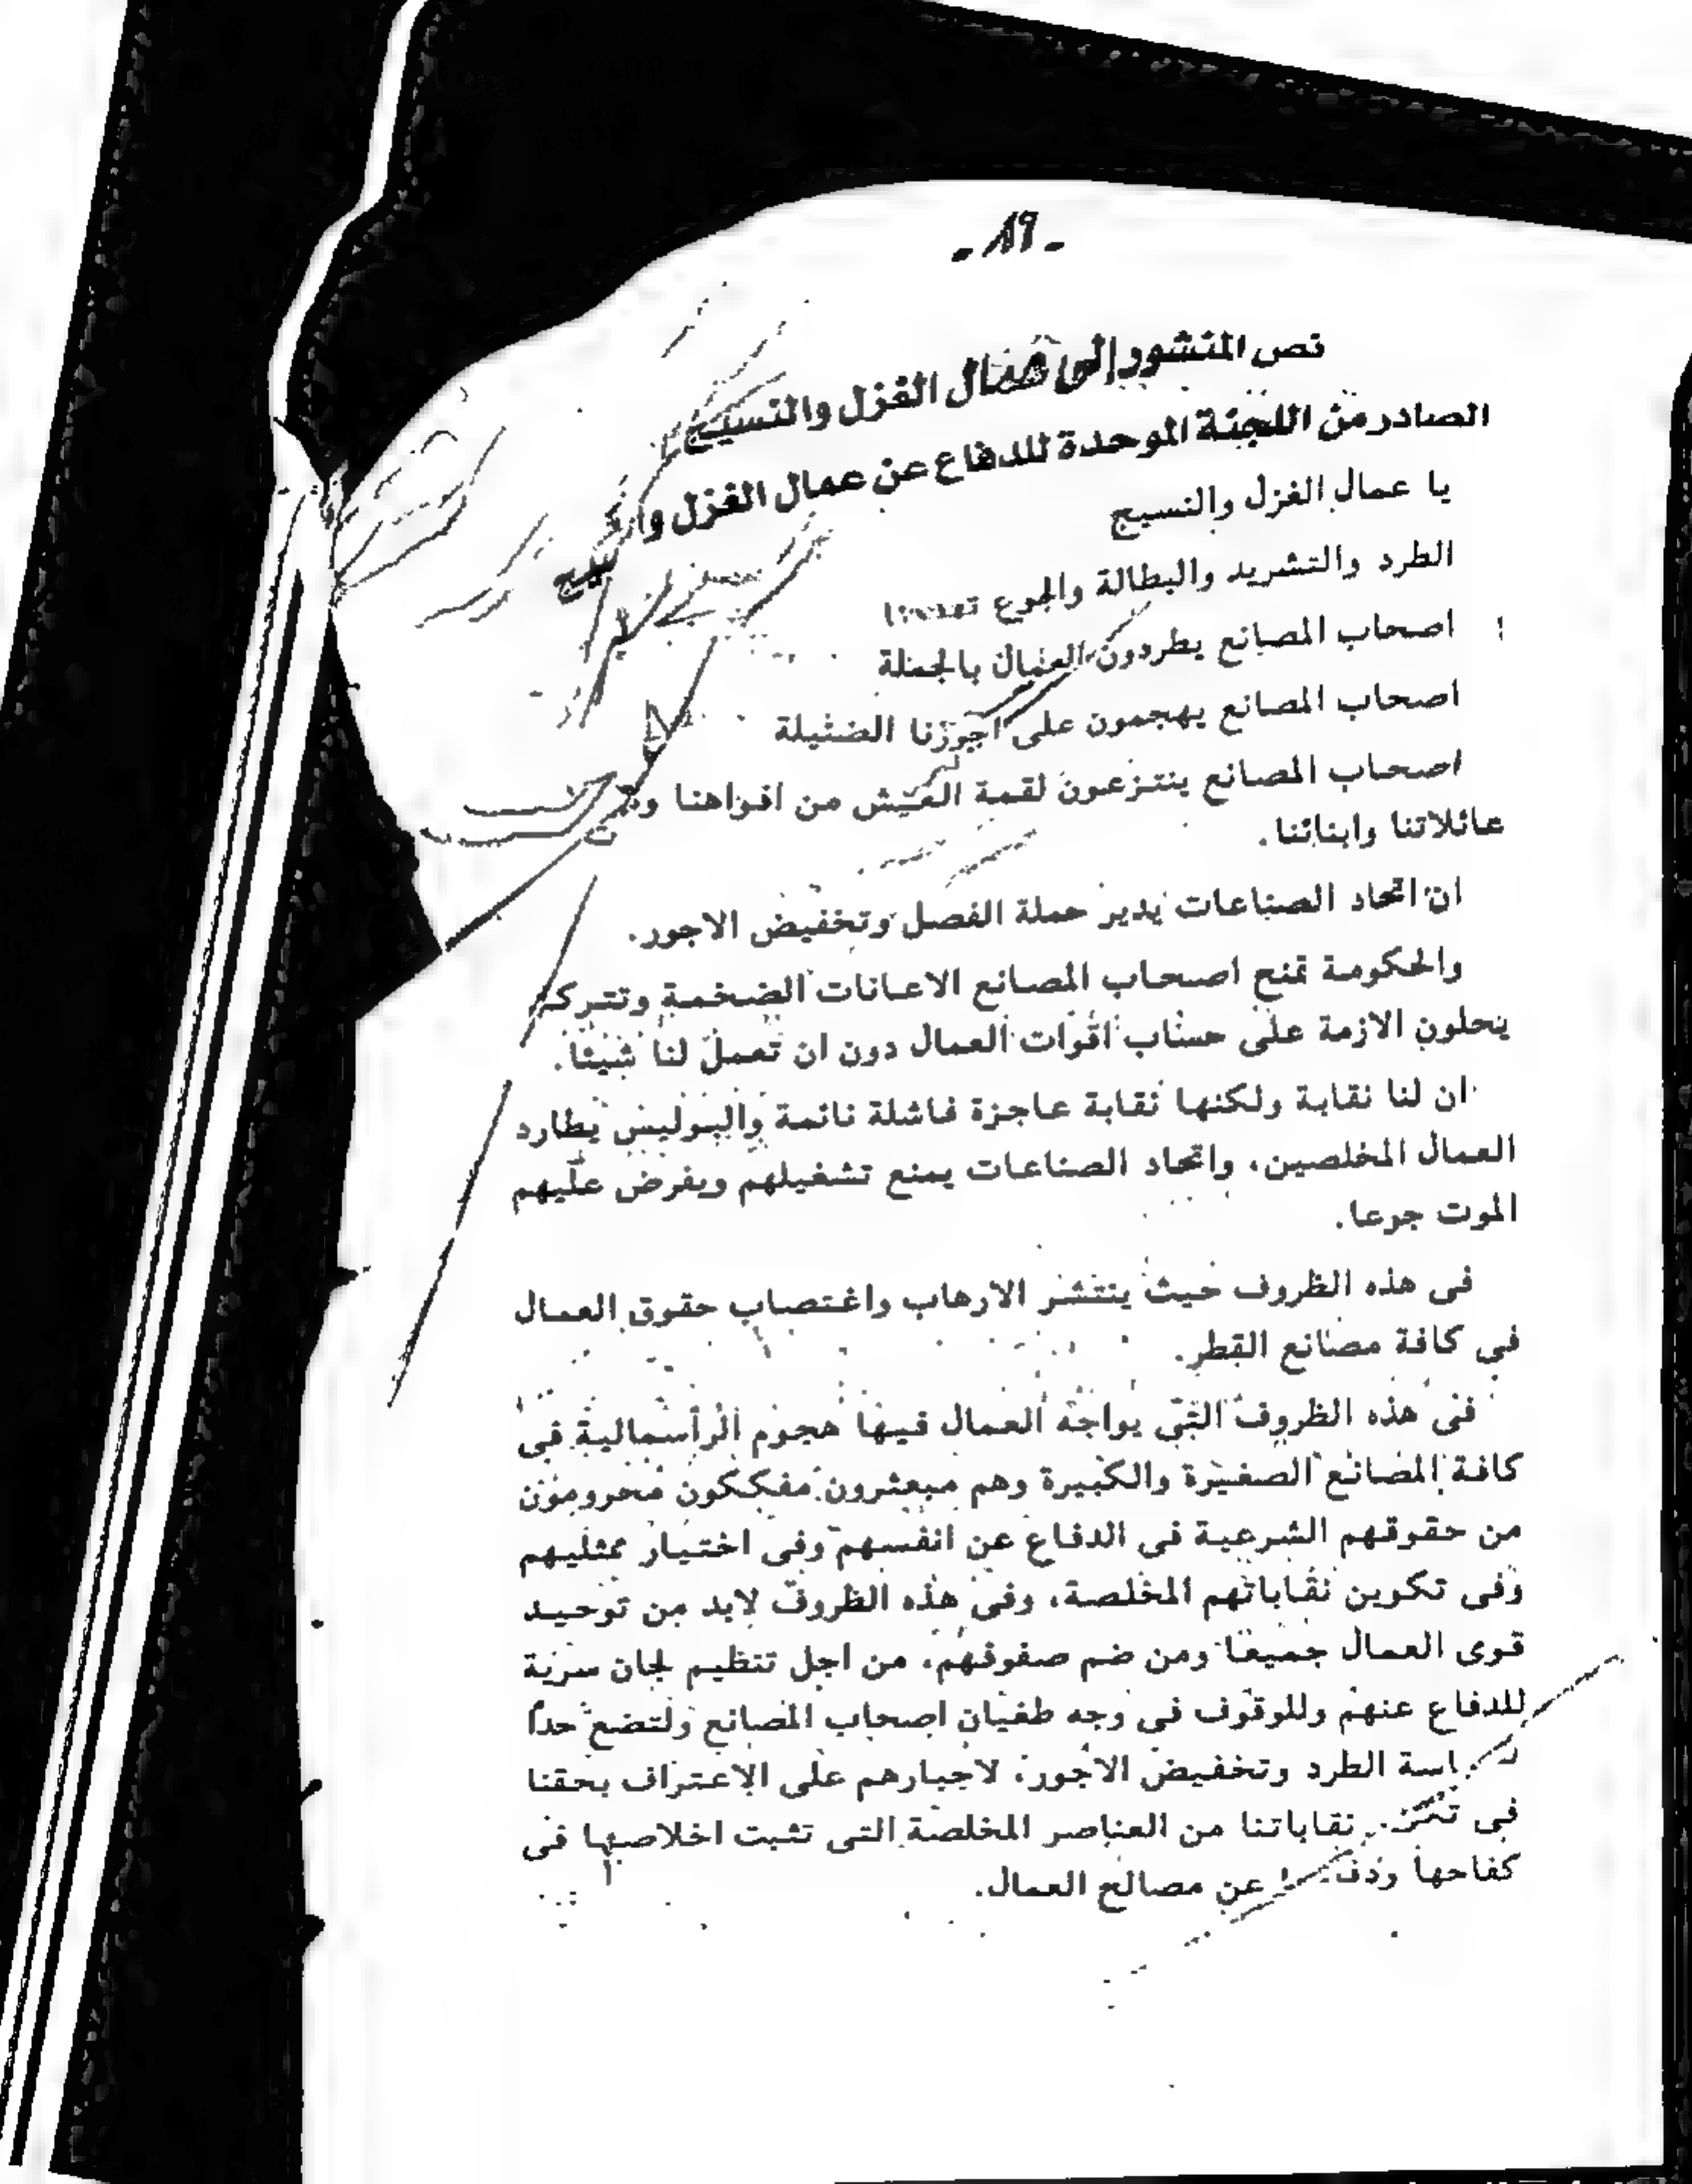 - 19 -
نص المنشور إلى عمال الغزل والنسيج
الصادر من اللجنة الموحدة للدفاع عن عمال الغزل والنسيج
يا عمال الغزل والنسيج
الطرد والتشريد والبطالة والجوع تهددنا
اصحاب المصانع يطردون العمال بالجملة
اصحاب المصانع يهجمون على اجورنا الضئيلة
اصحاب المصانع ينتزعون لقمة العيش من افواهنا
عائلاتنا وابنائنا.
ان اتحاد الصناعات يدير حملة الفصل وتخفيض الاجور.
والحكومة تمنح اصحاب المصانع الاعانات الضخمة وتتركهم
يحلون الازمة على حساب اقوات العمال دون ان تعمل لنا شيئا.
ان لنا نقابة ولكنها نقابة عاجزة فاشلة نائمة والبوليس يطارد
العمال المخلصين، واتحاد الصناعات يمنع تشغيلهم ويفرض عليهم
الموت جوعا.
فى هذه الظروف حيث ينتشر الارهاب واغتصاب حقوق العمال
فى كافة مصانع القطر.
فى هذه الظروف التى يواجه العمال فيها هجوم الرأسمالية فى
كافة المصانع الصغيرة والكبيرة وهم مبعثرون مفككون محرومون
من حقوقهم الشرعية فى الدفاع عن انفسهم وفى اختيار ممثليهم
وفى تكوين نقاباتهم المخلصة، وفى هذه الظروف لابد من توحيد
قوى العمال جميعا ومن ضم صفوفهم، من اجل تنظيم لجان سرية
للدفاع عنهم وللوقوف فى وجه طغيان اصحاب المصانع ولتضع حداً
الطرد وتخفيض الاجور، لاجبارهم على الاعتراف بحقنا
فى نقاباتنا من العناصر المخلصة التى تثبت اخلاصها فى
كفاحها عن مصالح العمال.